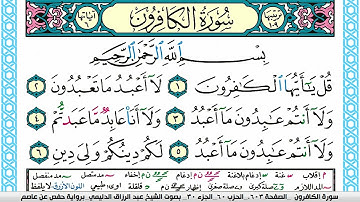 سُورَةُ الكَافِرُونَ
بِسْمِ اللَّهِ الرَّحْمَٰنِ الرَّحِيمِ
قُلْ يَا أَيُّهَا الْكَافِرُونَ ١ لَا أَعْبُدُ مَا تَعْبُدُونَ ٢
وَلَا أَنتُمْ عَابِدُونَ مَا أَعْبُدُ ٣ وَلَا أَنَا عَابِدٌ مَّا عَبَدتُّمْ ٤
وَلَا أَنتُمْ عَابِدُونَ مَا أَعْبُدُ ٥ لَكُمْ دِينُكُمْ وَلِيَ دِينِ ٦
سورة الكافرون - الصفحة ٦٠٣ - الحزب ٦٠ - الجزء ٣٠ - بصوت الشيخ عبد الرزاق الدليمي - برواية حفص عن عاصم